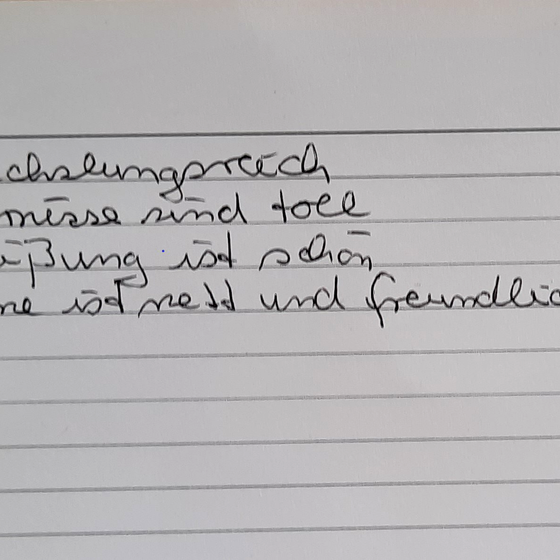 chslungsreich
nisse sind toll
üßung ist schön
ne ist nett und freundlic